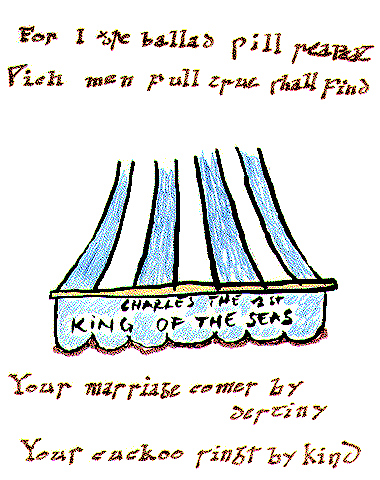 For I the ballad will repeat
Wich men full true shall find
CHARLES THE 1st
KING OF THE SEAS
Your marriage comes by
destiny
Your cuckoo sings by kind